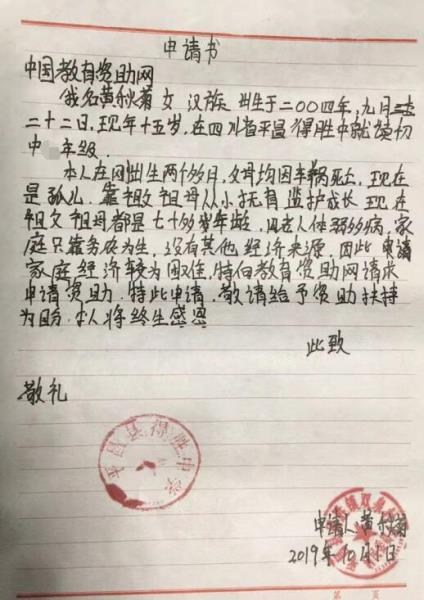 申请书
中国教育资助网
我名黄秋菊 女 汉族 出生于二〇〇四年,九月
二十二日,现年十五岁,在四川省平昌得胜中就读初
中 年级.
本人在刚出生两个多月,父母均因车祸死亡,现在
是孤儿.靠祖父祖母从小抚育监护成长.现在
祖父祖母都是七十多岁年龄,因老人体弱多病,家
庭只靠务农为生,没有其他经济来源,因此申请
家庭经济较为困难,特向教育资助网请求
申请资助.特此申请,敬请给予资助扶持
为盼.本人将终生感恩
此致
敬礼
平昌县得胜中学
申请人黄秋菊
2019年10月1日
第 页